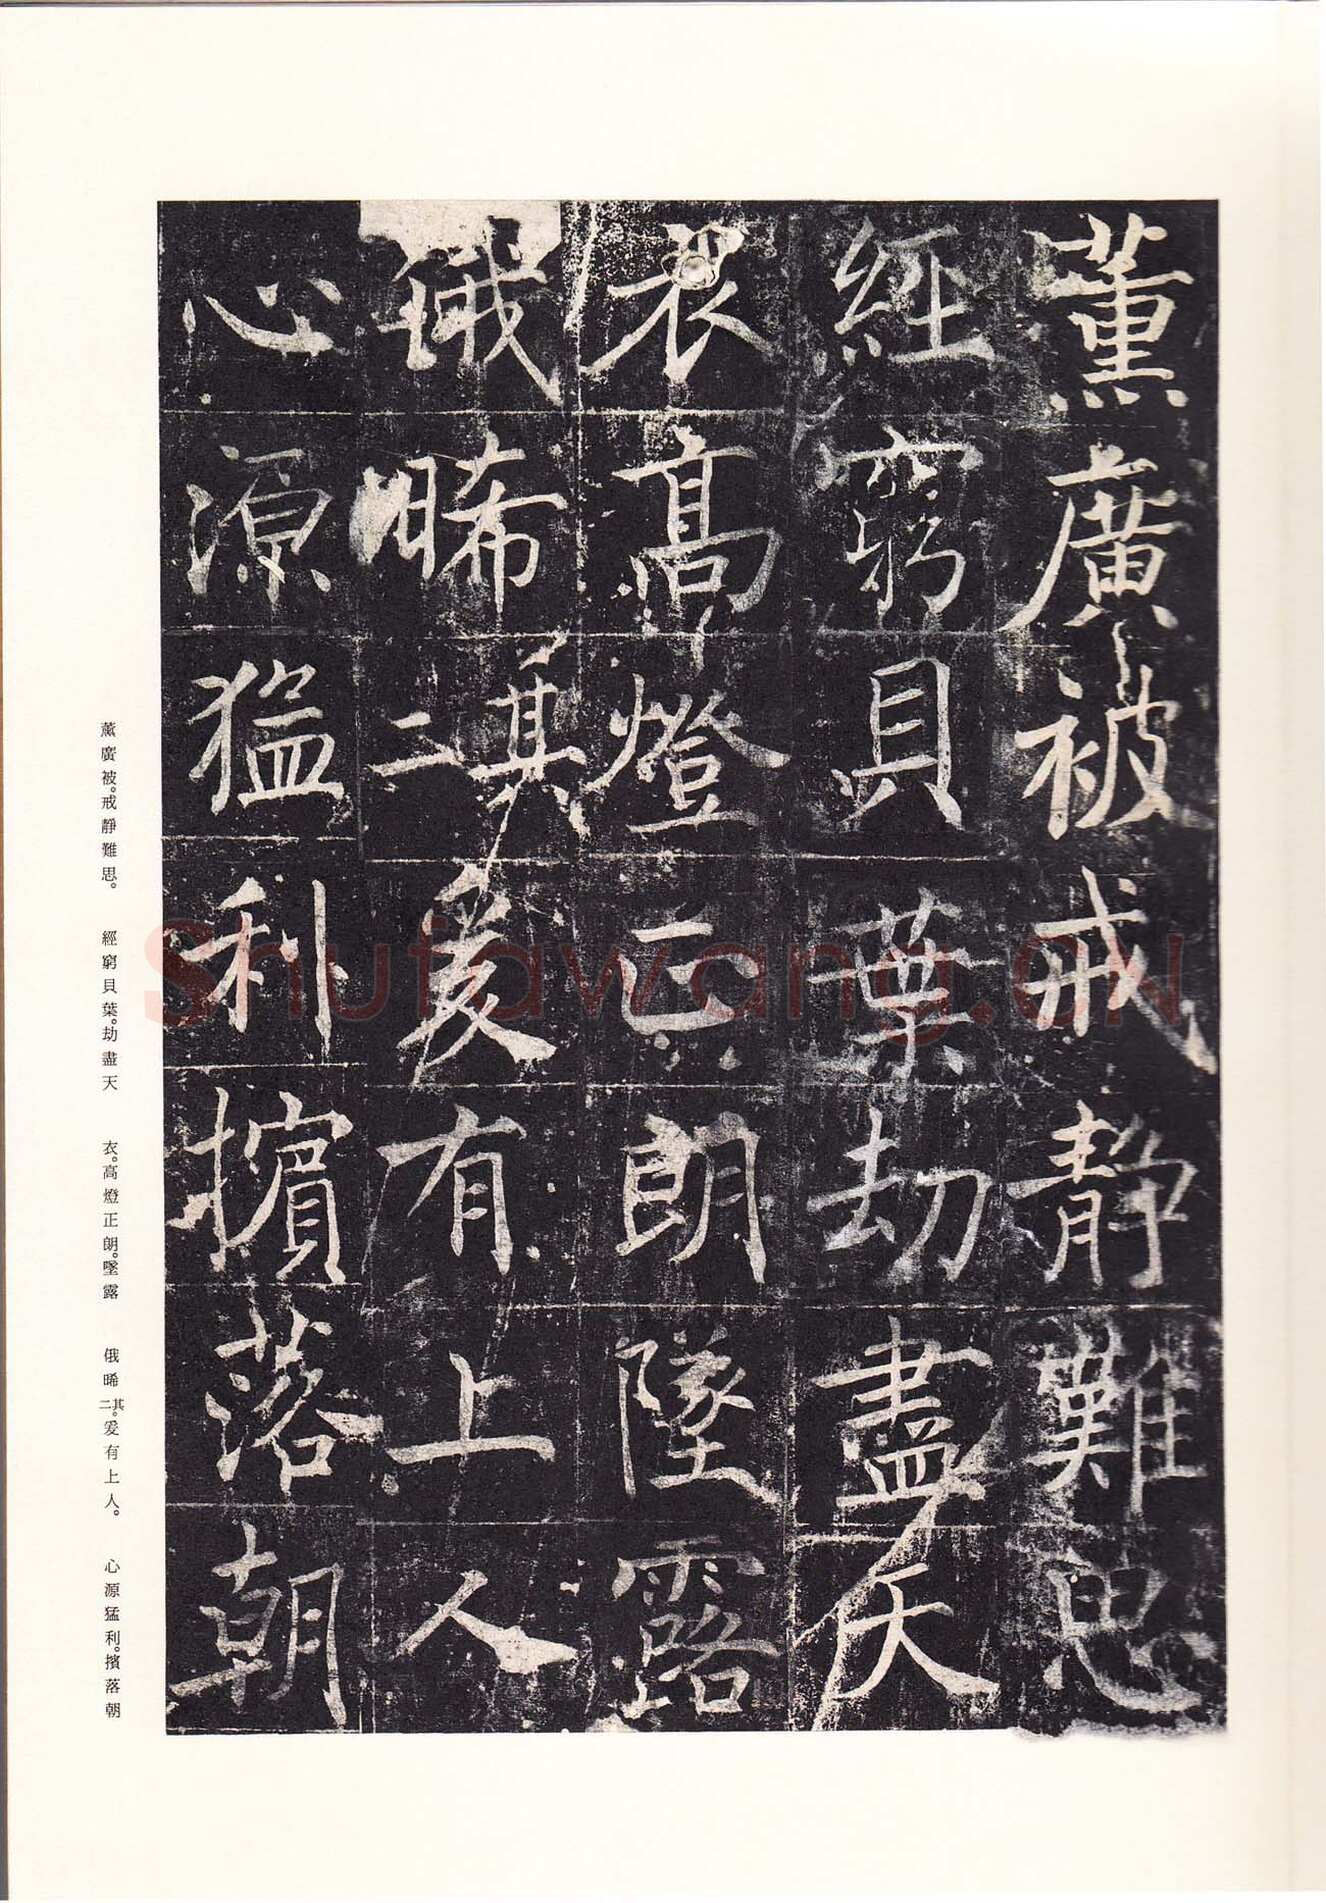 薰廣被戒靜難思
經窮貝葉劫盡天
衣高燈正朗墜露
俄晞其二爰有上人
心源猛利擯落朝
薰廣被。戒靜難思。 經窮貝葉。劫盡天 衣。高燈正朗。墜露 俄晞其二。爰有上人。 心源猛利。擯落朝
Shufawang.CN